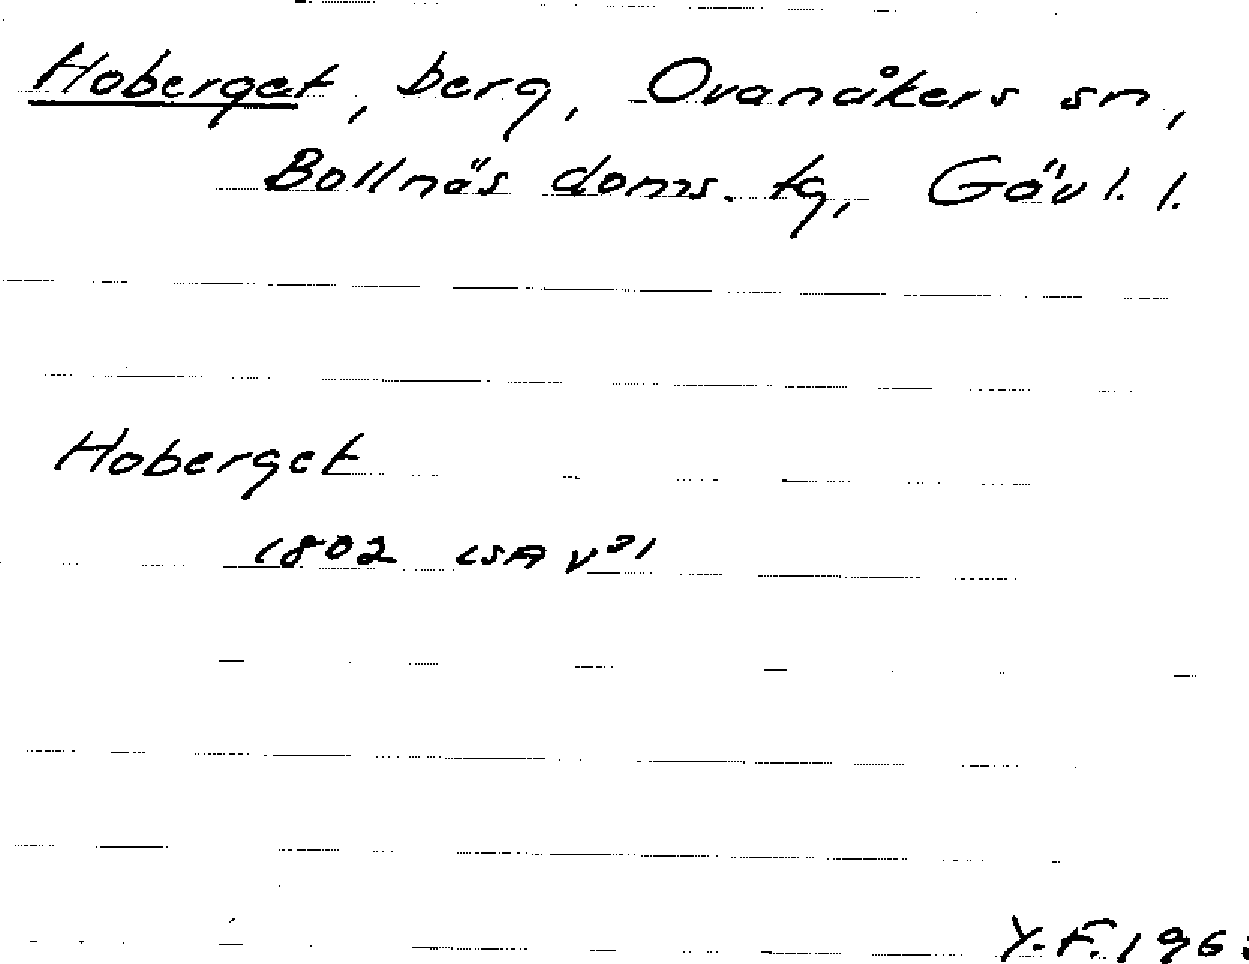 Hoberget, berg, Ovanåkers sn,
Bollnäs doms. tg, Gävl. l.
Hoberget
1802 LSA
Y.F. 196